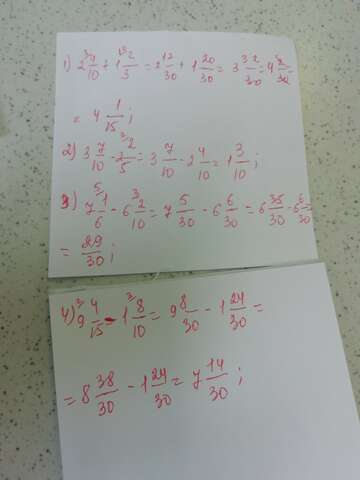 1) 2 4/10 + 1 2/3 = 2 12/30 + 1 20/30 = 3 32/30 = 4 2/30
= 4 1/15;
2) 3 7/10 - 2 2/5 = 3 7/10 - 2 4/10 = 1 3/10;
3) 7 1/6 - 6 2/10 = 7 5/30 - 6 6/30 = 6 35/30 - 6 6/30
= 29/30;
4) 9 4/15 - 1 8/10 = 9 8/30 - 1 24/30 =
= 8 38/30 - 1 24/30 = 7 14/30;